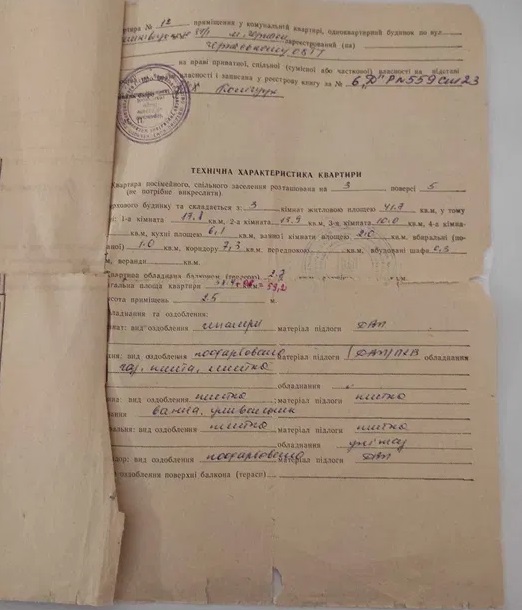 ртира № 12 приміщення у комунальній квартирі, одноквартирний будинок по вул.
зареєстрований (на)
на праві приватної, спільної (сумісної або часткової) власності на підставі
власності і записана у реєстрову книгу за № 6 "Д" Р №559 Спр 23
ТЕХНІЧНА ХАРАКТЕРИСТИКА КВАРТИРИ
Квартира посімейного, спільного заселення розташована на 3 поверсі 5
(не потрібне викреслити)
поверхового будинку та складається з: 3 кімнат житловою площею 41.7 кв.м, у тому
1-а кімната кв.м, 2-а кімната 13.9 кв.м, 3-я кімната 10.0 кв.м, 4-а кімна-
кв.м, кухні площею 6,1 кв.м, ванної кімнати площею 2,0 кв.м, вбиральні (по-
ної) 1.0 кв.м, коридору 7,3 кв.м, передпокою кв.м, вбудовані шафи 0,3
м, веранди кв.м.
Квартира обладнана балконом (лоджією) 2.7
гальна площа квартири = 59,2
сота приміщень 2.5 м.
ладнання та оздоблення:
нат: вид оздоблення шпалери матеріал підлоги ДВП
ня: вид оздоблення пофарбовано матеріал підлоги ДВП/ПХВ обладнання
газ. плита, плитка
обладнання
на: вид оздоблення плитка ; матеріал підлоги плитка
ання ванна, умивальник
альня: вид оздоблення плитка матеріал підлоги плитка
обладнання унітаз
дор: вид оздоблення пофарбовано матеріал підлоги ДВП
оздоблення поверхні балкона (тераси)